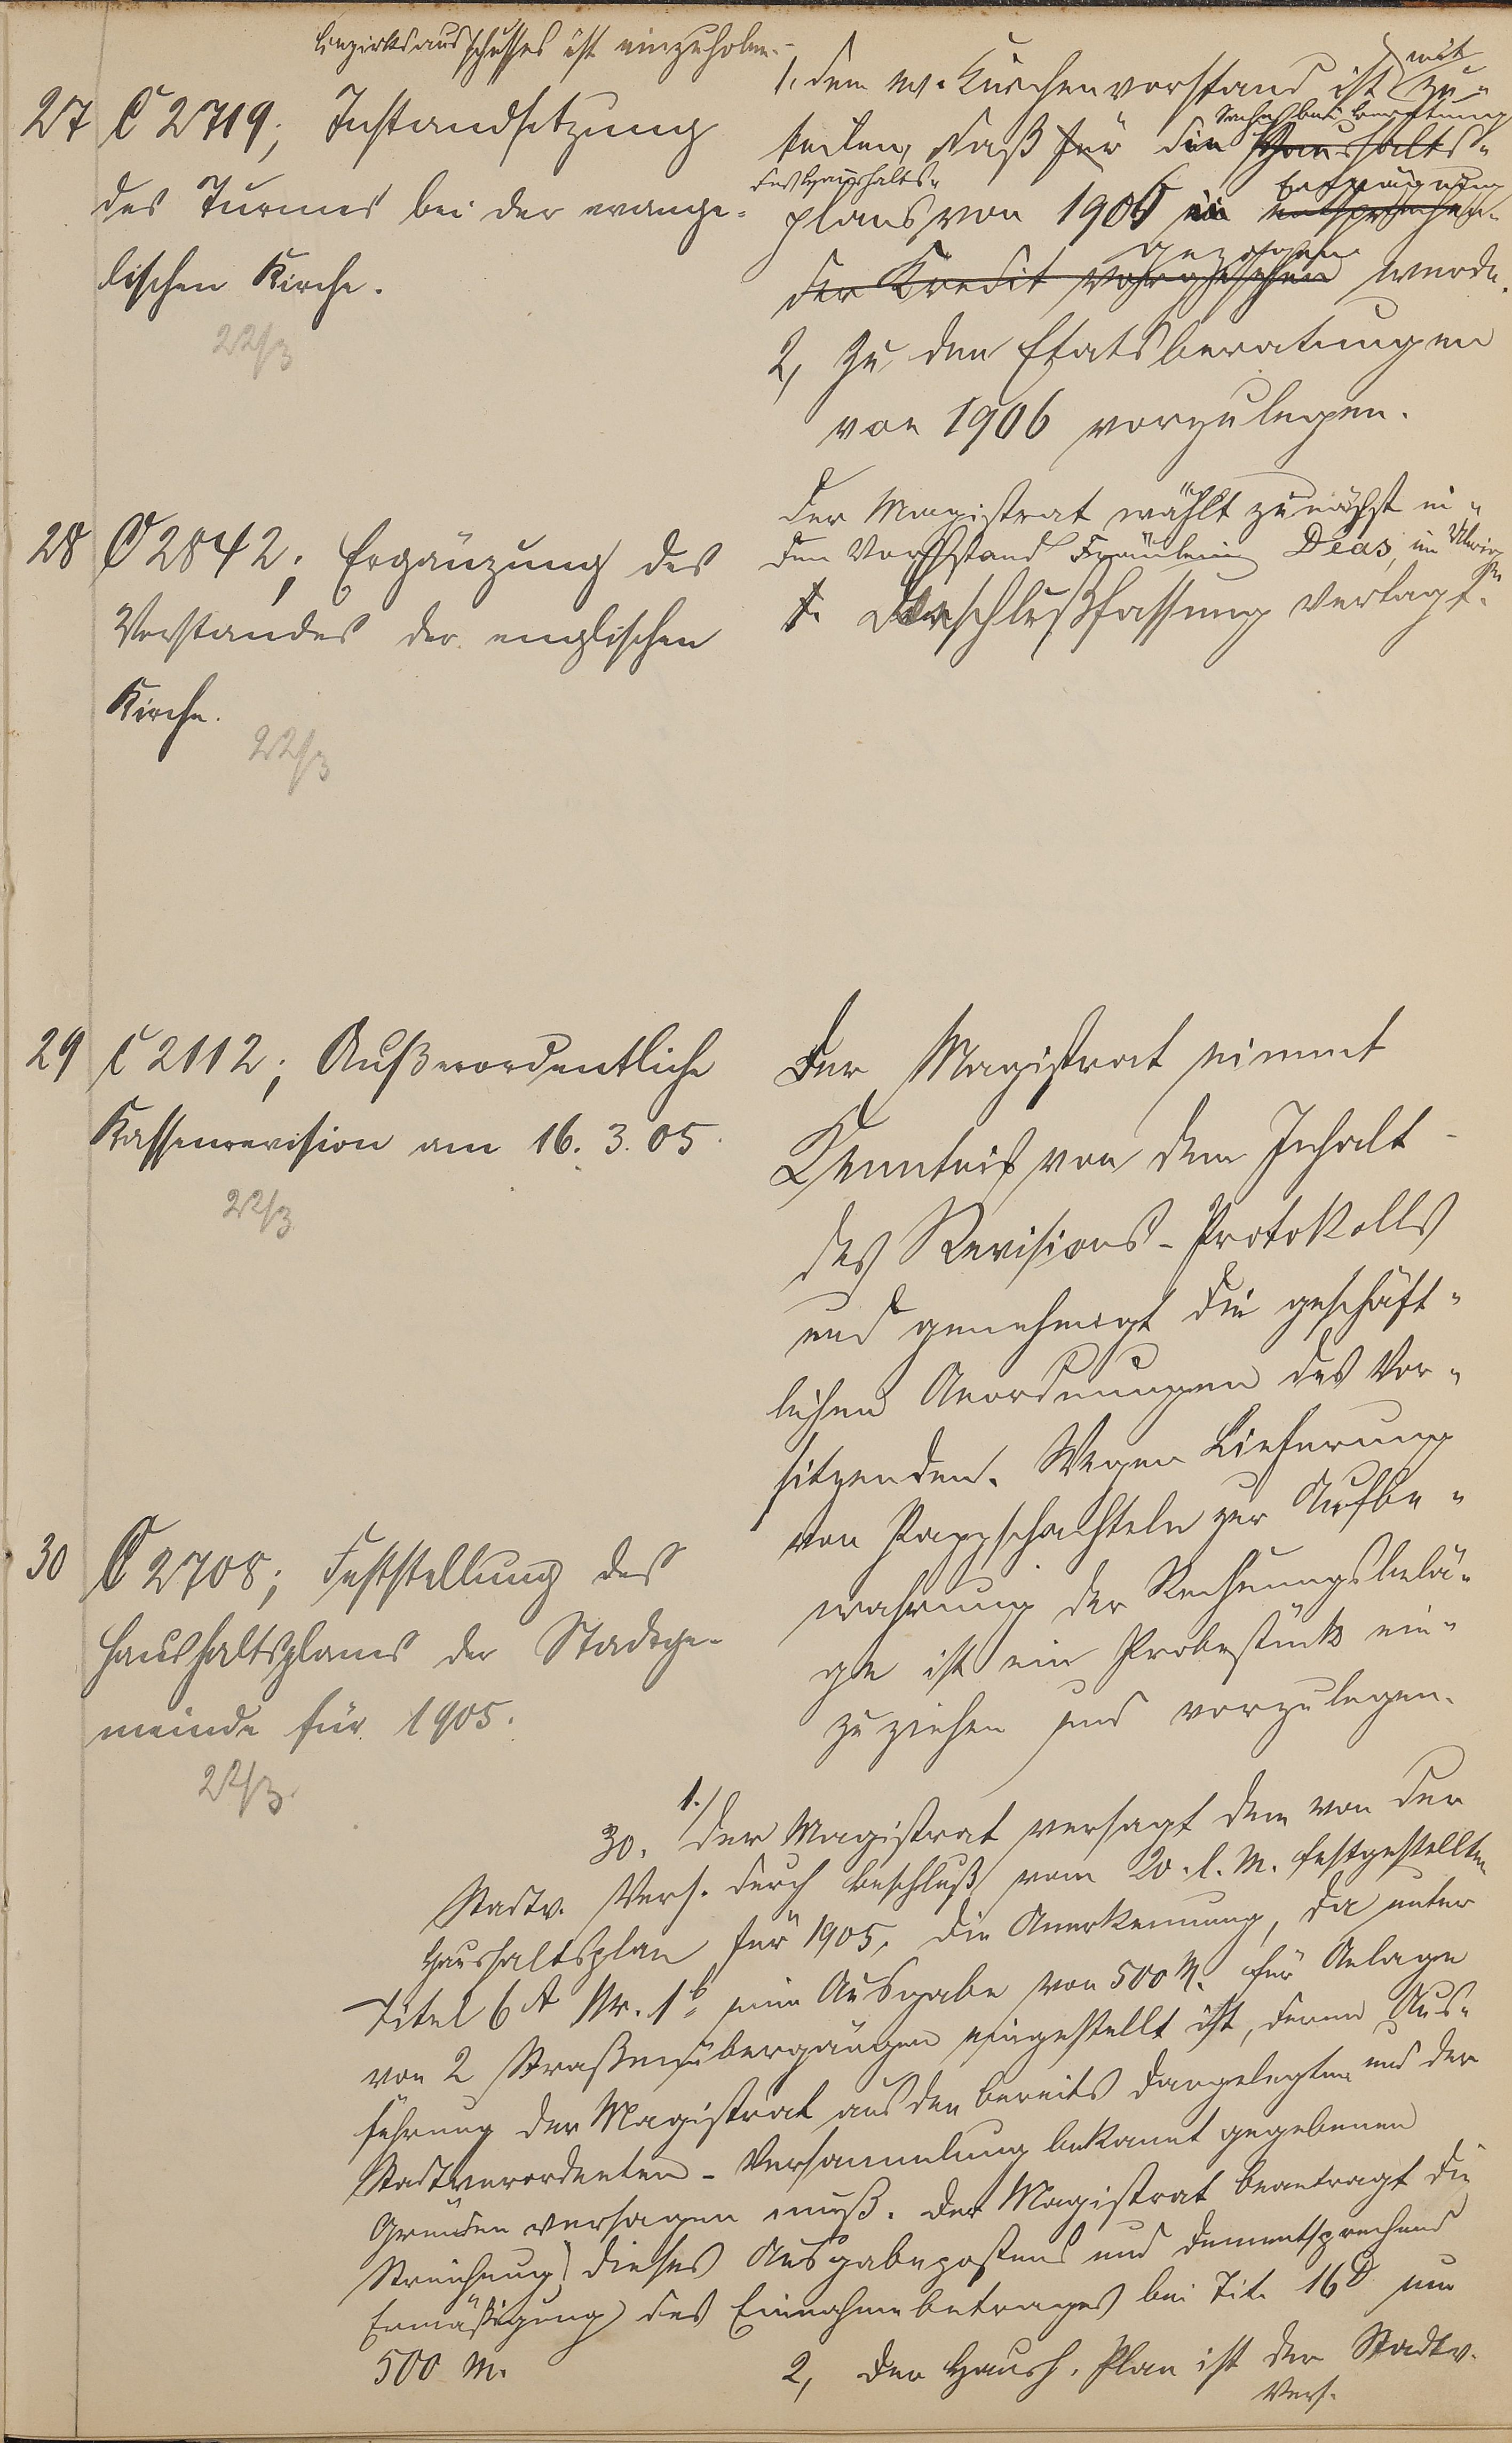 Bezirksausschusses ist einzuholen.-
27 C 2719; Instandsetzung
des Turmes bei der evange-
lischen Kirche.
22/3
1, dem ev. Kirchenvorstand ist mit zu-
teilen, daß für die Haushalts-
Sache bei Beratung
des Haushalts-
plans von 1906 in entsprechen-
Erwägung
der Kredit vorgesehen werde.
gezogen
2, Zu den Etatsberatungen
von 1906 vorzulegen.
28 C 2842; Ergänzung des
Vorstandes der englischen
Kirche.
22/3
Der Magistrat wählt zunächst in
den Vorstand Fräulein Deas, im Übrigen
Beschlußfassung vertagt.
29 C 2112; Außerordentliche
Kassenrevision am 16. 3. 05.
22/3
Der Magistrat nimmt
Kenntnis von dem Inhalt
des Revisions-Protokolls
und genehmigt die geschäft-
lichen Anordnungen des Vor-
sitzenden. Wegen Lieferung
von Pappschachteln zur Aufbe-
wahrung der Rechnungsbelä-
ge ist ein Probestück ein-
zuziehen und vorzulegen.
30 C 2708; Feststellung des
Haushaltsplanes der Stadtge-
meinde für 1905.
22/3.
30. 1./ Der Magistrat versagt dem von der
Stadtv. Vers. durch Beschluß vom 20. l. M. festgestellten
Haushaltsplan für 1905, die Anerkennung, da unter
Titel 6 A Nr. 1b eine Ausgabe von 500 M. für Anlage
von 2 Straßenübergängen eingestellt ist, deren Aus-
führung der Magistrat aus den bereits dargelegten und der
Stadtverordneten-Versammlung bekannt gegebenen
Gründen versagen muß. Der Magistrat beantragt die
Streichung dieses Ausgabepostens und dementsprechend
Ermäßigung des Einnahmebetrages bei Tit. 16 D um
500 M.
2, Der Haush. Plan ist der Stadtv.
Vers.